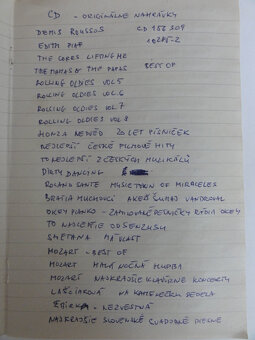 CD - ORIGINÁLNE NAHRÁVKY
DEMIS ROUSSOS CD 152 309
EDITH PIAF 10285-2
THE CORRS LIFTING ME
THE MAMAS & THE PAPAS BEST OF
ROLLING OLDIES VOL 5
ROLLING OLDIES VOL. 6
ROLLING OLDIES VOL. 7
ROLLING OLDIES VOL 8
HONZA NEDVĚD 20 LET PÍSNIČEK
NEJLEPŠÍ ČESKÉ FILMOVÉ HITY
TO NEJLEPŠÍ Z ČESKÝCH MUZIKÁLŮ
DIRTY DANCING
ROLAND SANTÉ MUSIC TOWN OF MIRACELES
BRATIA MUCHOVCI AKEĎ ŠUHAJ VANDROVAL
OKEY PIANKO - ZAMILOVANÉ PESNIČKY RÁDIA OKEY
TO NAJLEPŠIE OD SENZUSU
SMETANA MÁ VLAST
MOZART - BEST OF
MOZART MALÁ NOČNÁ HUDBA
MOZART NAJKRAJŠIE KLAVÍRNE KONCERTY
LAŠČIAKOVÁ NA KAMENEČKÁCH SEDELA
- NEZVESTNÁ
NAJKRAJŠIE SLOVENSKÉ SVADOBNÉ PIESNE